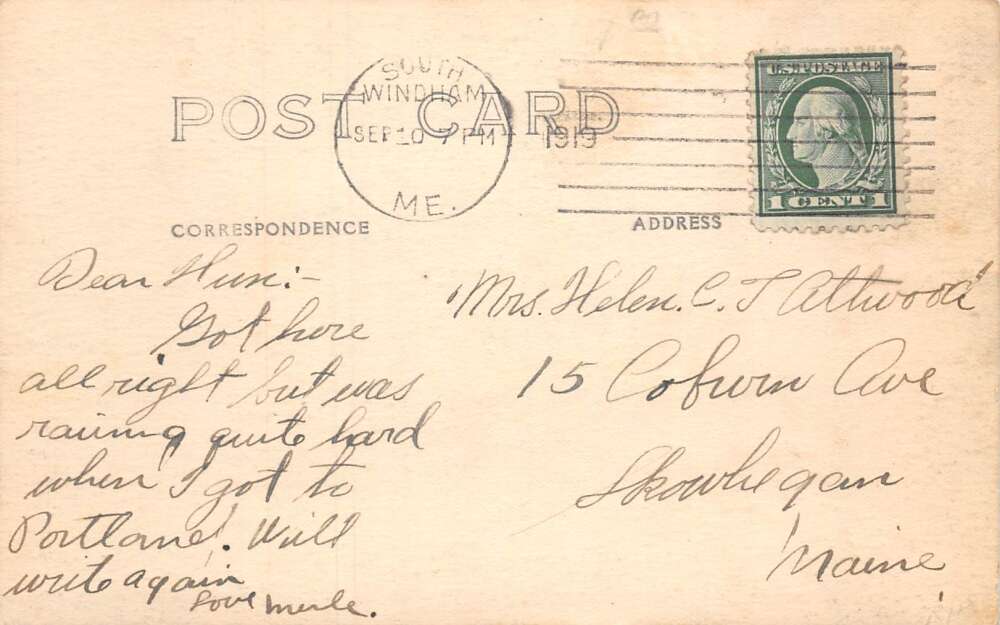 SOUTH
WINDHAM
SEP 10 7 PM 1919
ME.
U.S. POSTAGE
1 CENT 1
POST CARD
CORRESPONDENCE
ADDRESS
Dear Hun:-
Got here
all right but was
raining quite hard
when I got to
Portland. Will
write again
Love Merle.
Mrs. Helen. C. T Attwood
15 Coburn Ave
Skowhegan
Maine